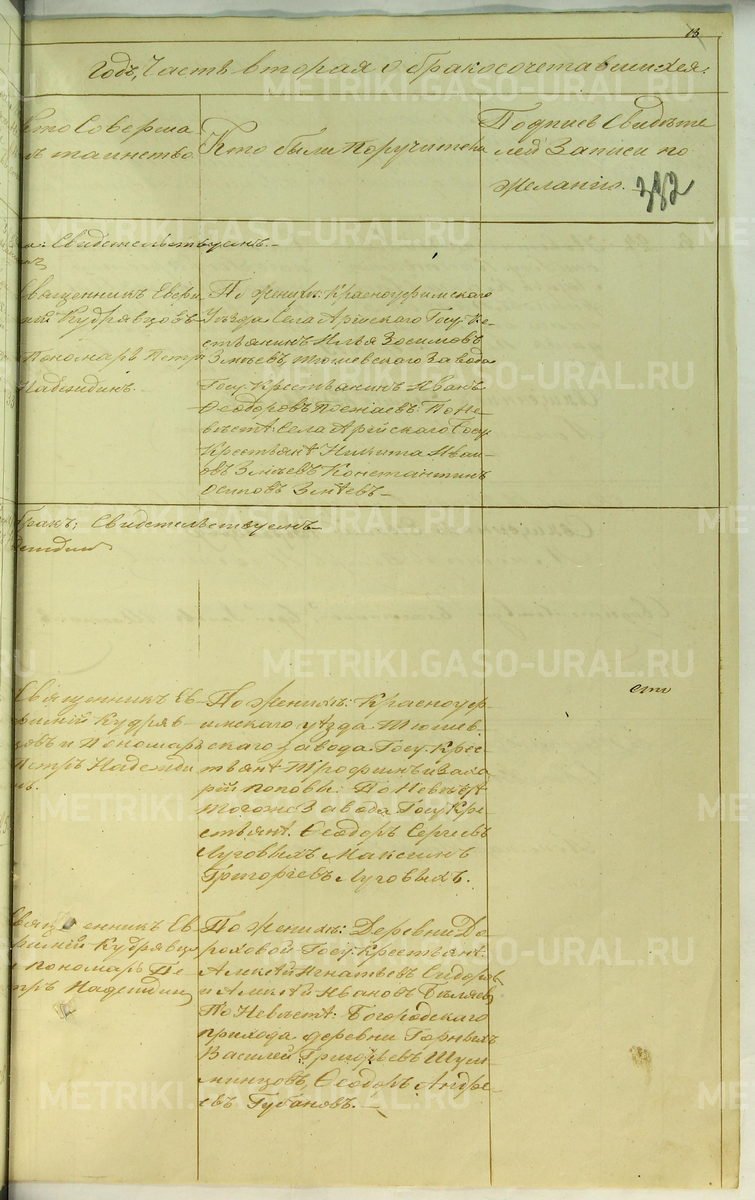 13
годъ, Часть вторая о бракосочетавшихся.
Кто Соверша
лъ таинство
Кто были поручители
Подписъ Свидѣте
лей Записи по
желанію.
382
Свидетельствуемъ.
Священникъ Евѳи
мій Кудрявцовъ
Пономарь Петръ
Надеждинъ.
По женихѣ: Красноуфимскаго
Уѣзда Села Арійскаго Госу: Кре
стьянинъ Илья Зосимовъ
Змѣевъ, Тюшевскаго Завода
Госу: Крестьянинъ Иванъ
Ѳеодоровъ По не
вѣстѣ: Села Арійскаго Госу
Крестьянѣ Никита Иван
овъ Змѣевъ Константинъ
Осиповъ Змѣевъ.
бракъ; Свидетельствуемъ
Священникъ Ев
ѳимій Кудряв
цовъ и Пономарь
Петръ Надежди
нъ.
По Женихѣ: Красноуф
имскаго уѣзда Тюшев
скаго завода Госу: Крес
тьянѣ Трофимъ и Заха
рій Поповы: По Невѣстѣ
тогоже Завода Госу: Кре
стьянѣ: Ѳеодоръ Сергѣевъ
Луговыхъ Максимъ
Григорьевъ Луговыхъ.
Священникъ Ев
ѳимій Кудрявцо
пономарь Пе
тръ Надеждин
По Женихѣ: Деревни До
роховой Госу: Крестьянѣ:
Алексѣй Игнатьевъ Сидоровъ
и Алексѣй Ивановъ Бѣляевъ
По Невѣстѣ: Богородскаго
прихода деревни Горныхъ
Василей Григорьевъ Шул
минцовъ, Ѳеодоръ Андре
евъ Губановъ.
METRIKI.GASO-URAL.RU